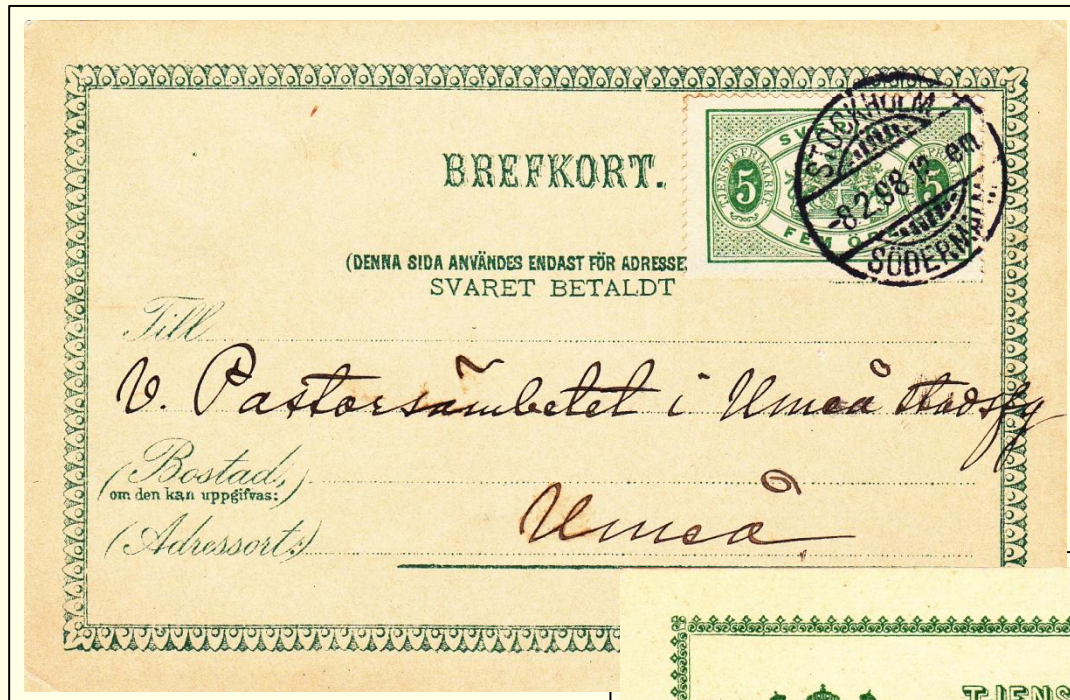 BREFKORT.
(DENNA SIDA ANVÄNDES ENDAST FÖR ADRESSE
SVARET BETALDT
TJENSTEFRIMÄRKE
5
5
FEM
STOCKHOLM
-8.2.98 12 em
SÖDERMALM
Till
V. Pastorsämbetet i Umeå stadsfg
(Bostad,)
om den kan uppgifvas:
Umeå
(Adressort:)
TJENS